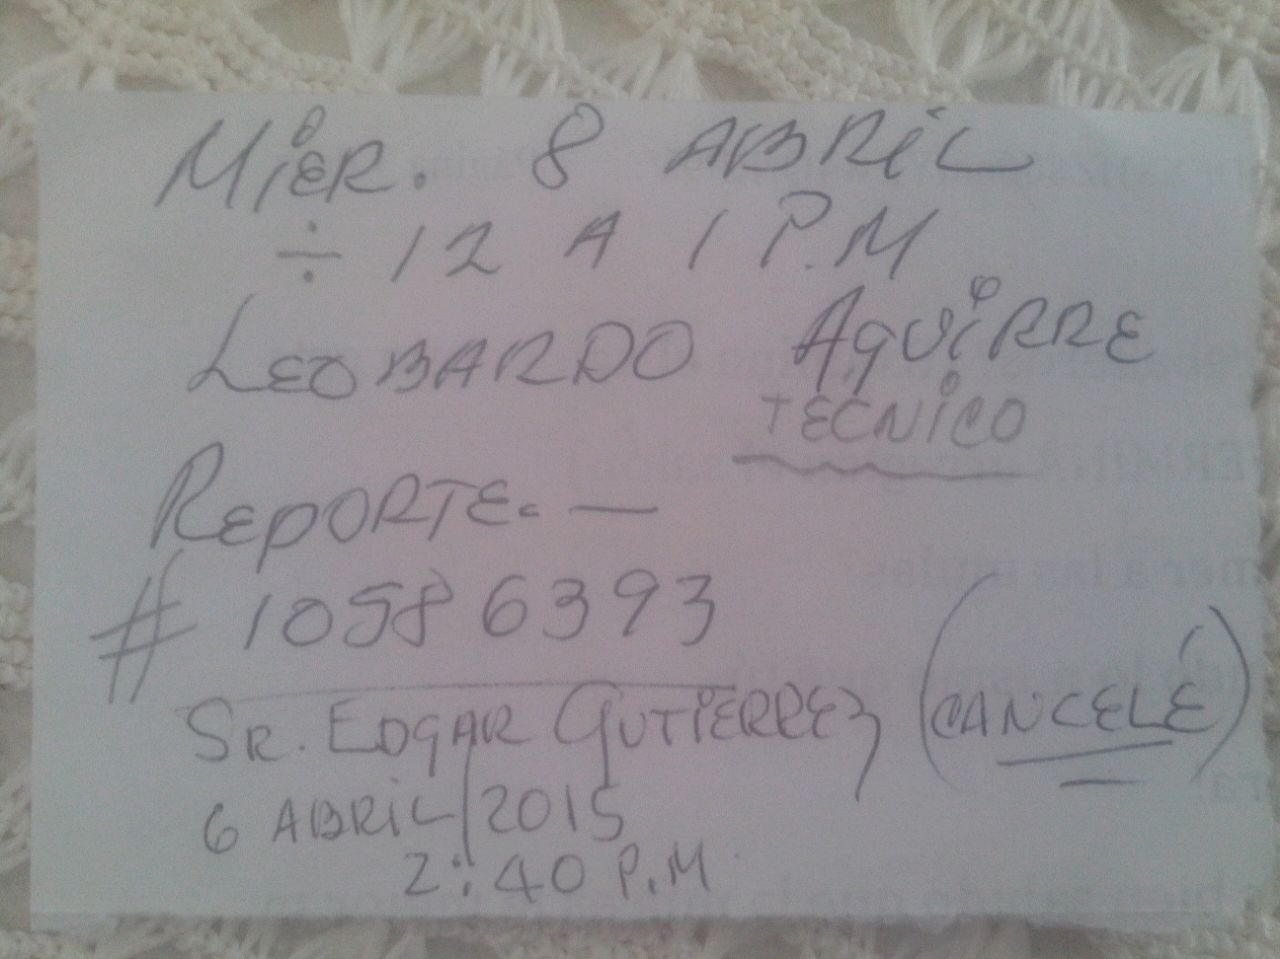 MiER. 8 ABRiL
÷ 12 A 1 P.M
LEOBARDO AgUiRRE
TECNiCO
REpORTE. —
# 10586393
SR. EDgAR GUTiERREZ (CANCELÉ)
6 ABRiL/2015
2:40 P.M.